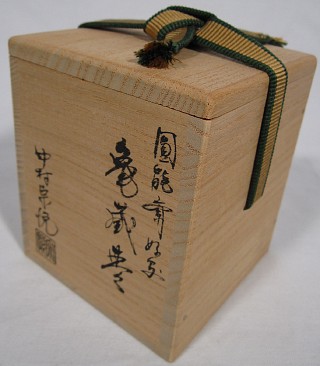 圓能斎好写
亀蔵棗
中村宗悦